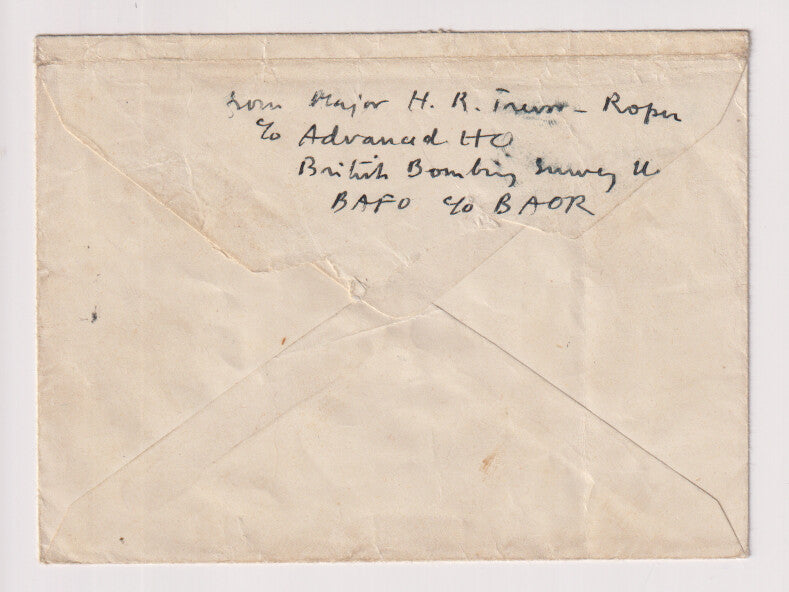 from Major H. R. Trevor-Roper
c/o Advanced HQ
British Bombing Survey U
BAFO c/o BAOR